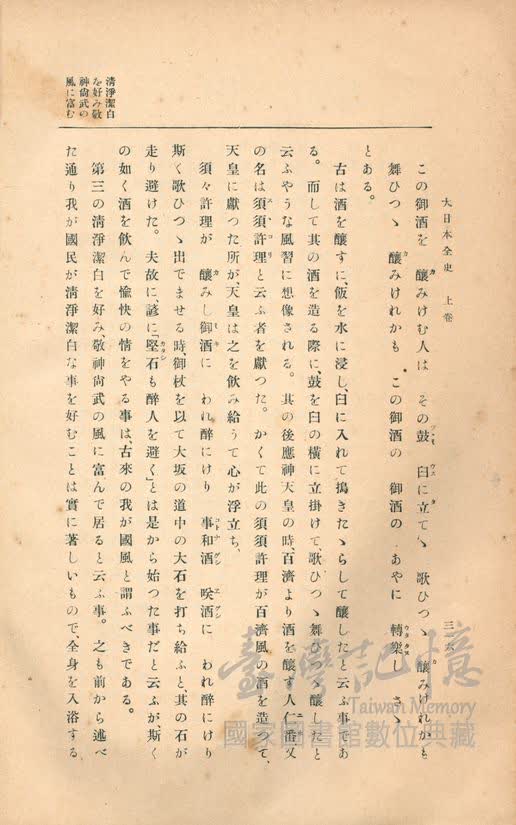 大日本全史 上卷
三六
淸淨潔白
を好み敬
神尙武の
風に富む
この御酒を 釀みけむ人は その鼓 臼に立てゝ 歌ひつゝ 釀みけれかも
舞ひつゝ 釀みけれかも この御酒の 御酒の あやに 轉樂し さゝ
とある。
古は酒を釀すに、飯を水に浸し、臼に入れて搗きたゝらして釀したと云ふ事であ
る。而して其の酒を造る際に、鼓を臼の橫に立掛けて歌ひつゝ舞ひつゝ釀したと
云ふやうな風習に想像される。其の後應神天皇の時、百濟より酒を釀す人仁番又
の名は須須許理と云ふ者を獻つた。かくて此の須須許理が百濟風の酒を造つて、
天皇に獻つた所が、天皇は之を飮み給うて心が浮立ち、
須々許理が 釀みし御酒に われ醉にけり 事和酒 咲酒に われ醉にけり
斯く歌ひつゝ出でませる時、御杖を以て大坂の道中の大石を打ち給ふと、其の石が
走り避けた。夫故に、諺に「堅石も醉人を避く」とは是から始つた事だと云ふが、斯く
の如く酒を飮んで愉快の情をやる事は、古來の我が國風と謂ふべきである。
第三の淸淨潔白を好み敬神尙武の風に富んで居ると云ふ事。之も前から述べ
た通り我が國民が淸淨潔白な事を好むことは實に著しいもので、全身を入浴する
臺灣記憶
Taiwan Memory
國家圖書館數位典藏